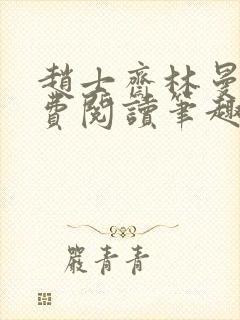 趙士齋林曼
費閱讀筆趣
嚴青青